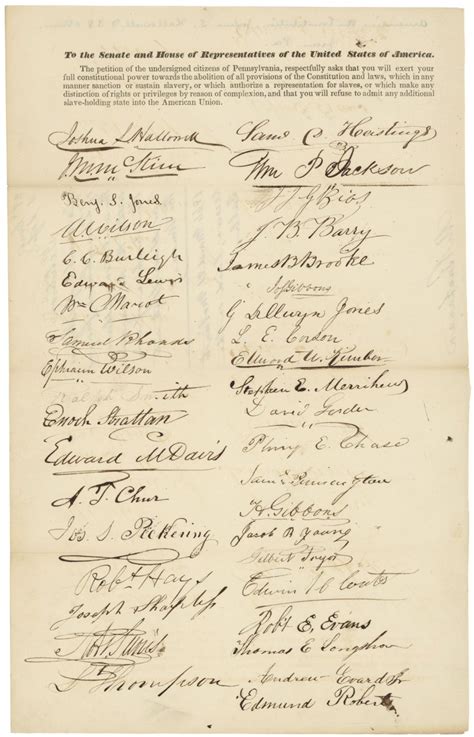 To the Senate and House of Representatives of the United States of America.
The petition of the undersigned citizens of Pennsylvania, respectfully asks that you will exert your
full constitutional power towards the abolition of all provisions of the Constitution and laws, which in any
manner sanction or sustain slavery, or which authorize a representation for slaves, or which make any
distinction of rights or privileges by reason of complexion, and that you will refuse to admit any additional
slave-holding state into the American Union.
Joshua L Hallowell
Benj. S. Jones
A. Wilson
C. C. Burleigh
Edward Lewis
Wm Marot
Samuel Rhoads
Ephraim Wilson
Ralph Smith
Enoch Strattan
Edward M Davis
A. T. Chur
Jos S. Pickering
Robt Hays
Joseph Sharpless
Thompson
Hastings
Wm P Jackson
J. B. Barry
James B Brooke
Gibbons
Jones
L. E. Corson
Edmund
Stephen E. Merrihew
David
E. Chase
Pennington
H. Gibbons
Jacob R Young
Gilbert
Edwin H Coats
Robt E. Evans
Thomas E Longshore
Andrew Evard Jr
Edmund Roberts